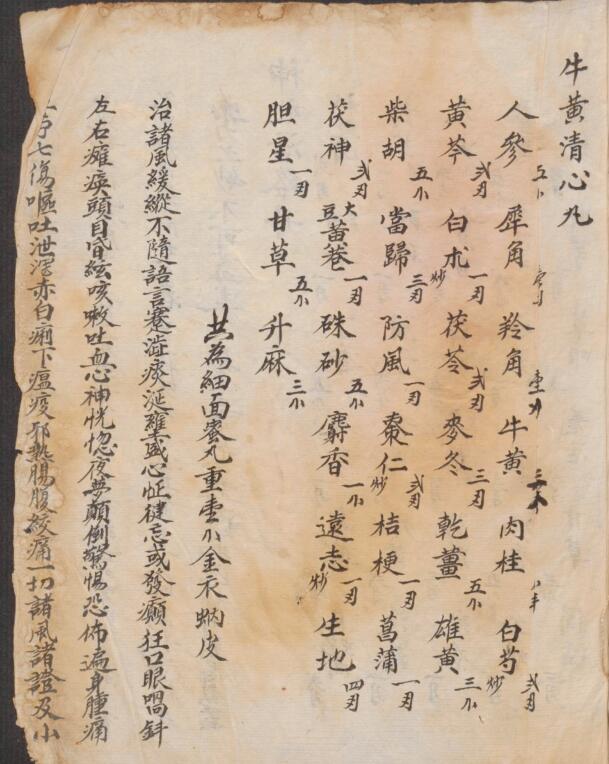 牛黃清心丸
人參 五卜 犀角 羚角 壹刃 牛黃 三卜 肉桂 白芍 炒 弍刃
黃芩 弍刃 白朮 炒 一刃 茯苓 弍刃 麥冬 三刃 乾薑 五卜 雄黃 三卜
柴胡 五卜 當歸 三刃 防風 一刃 棗仁 炒 弍刃 桔梗 一刃 菖蒲 一刃
茯神 弍刃 大豆黃卷 一刃 硃砂 五卜 麝香 一卜 遠志 炒 一刃 生地 四刃
胆星 一刃 甘草 五卜 升麻 三卜
共為細面蜜丸重壹卜金衣蚋皮
治諸風緩縱不隨語言蹇澁痰涎壅盛心怔健忘或發癲狂口眼喎斜
左右癱瘓頭目昏絃咳嗽吐血心神恍惚夜夢顛倒驚惕恐怖遍身腫痛
七傷嘔吐泄瀉赤白痢下瘟疫邪熱腸腹絞痛一切諸風諸證及小